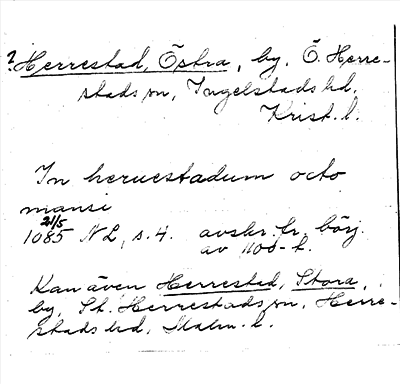 ? Herrestad, Östra, by, Ö. Herre-
stads sn, Ingelstads hd,
Krist. l.
In heruestadum octo
mansi
21/5
1085 NL, s. 4. avskr. fr. börj.
av 1100-t.
Kan även Herrestad, Stora,
by, St. Herrestads sn, Herre-
stads hd, Malm. l.